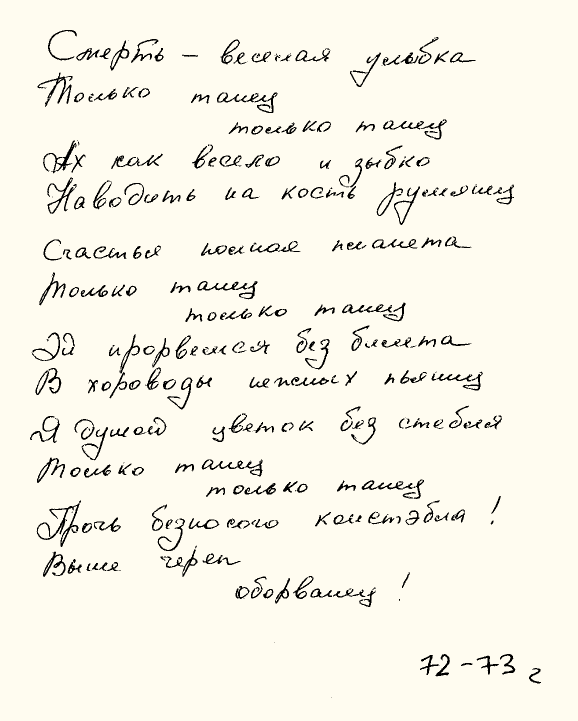 Смерть – веселая улыбка
Только танец
только танец
Ах как весело и зыбко
Наводить на кость румянец
Счастья полная планета
Только танец
только танец
Эй прорвемся без билета
В хороводы нежных пьяниц
Я душой цветок без стебля
Только танец
только танец
Прочь безносого констэбля!
Выше череп
оборванец!
72–73 г